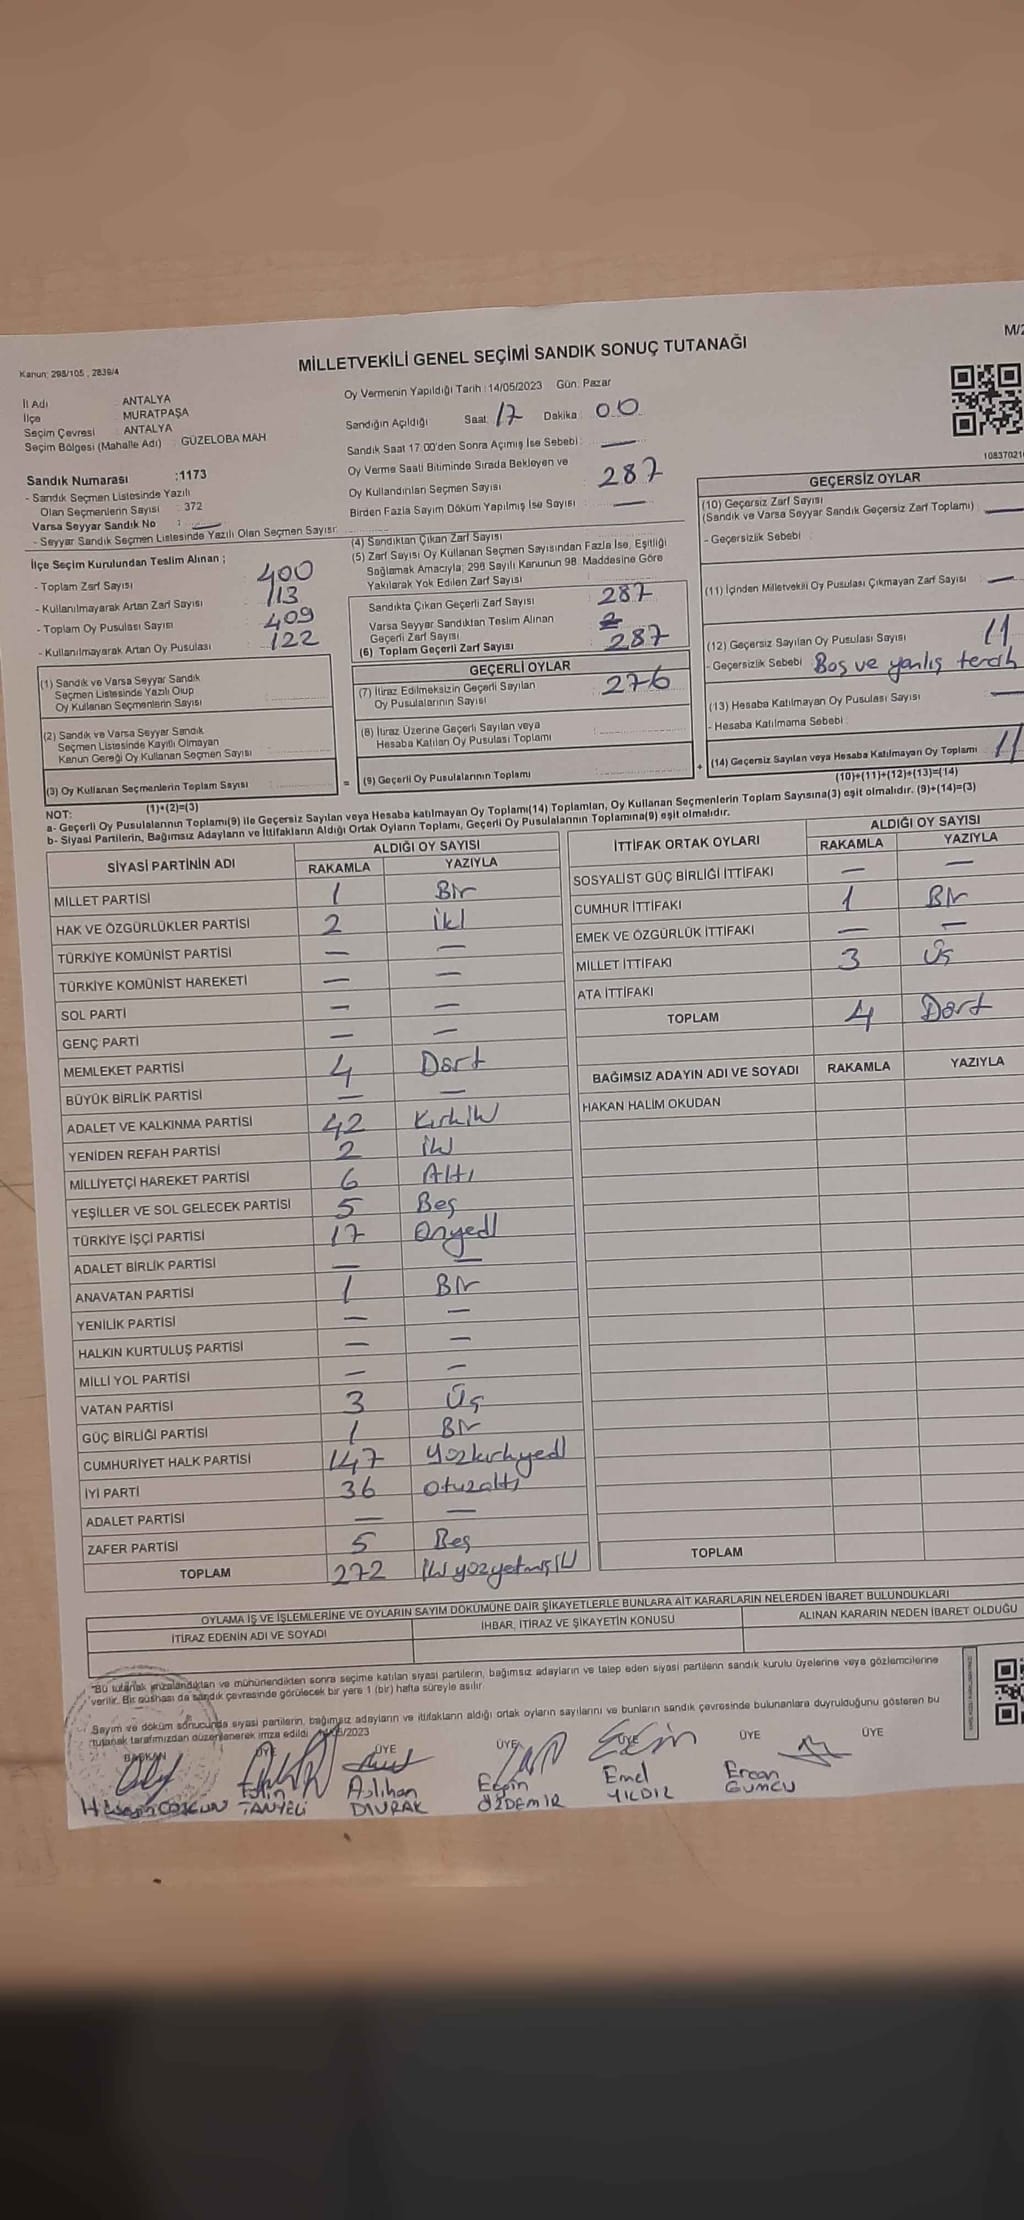 M/2
Kanun: 298/105 , 2839/4
MİLLETVEKİLİ GENEL SEÇİMİ SANDIK SONUÇ TUTANAĞI
İl Adı ANTALYA
İlçe MURATPAŞA
Seçim Çevresi ANTALYA
Seçim Bölgesi (Mahalle Adı) GÜZELOBA MAH
Sandık Numarası :1173
- Sandık Seçmen Listesinde Yazılı
Olan Seçmenlerin Sayısı : 372
Varsa Seyyar Sandık No : —
- Seyyar Sandık Seçmen Listesinde Yazılı Olan Seçmen Sayısı:
İlçe Seçim Kurulundan Teslim Alınan ;
- Toplam Zarf Sayısı 400
- Kullanılmayarak Artan Zarf Sayısı 113
- Toplam Oy Pusulası Sayısı 409
- Kullanılmayarak Artan Oy Pusulası 122
(1) Sandık ve Varsa Seyyar Sandık
Seçmen Listesinde Yazılı Olup
Oy Kullanan Seçmenlerin Sayısı
(2) Sandık ve Varsa Seyyar Sandık
Seçmen Listesinde Kayıtlı Olmayan
Kanun Gereği Oy Kullanan Seçmen Sayısı
(3) Oy Kullanan Seçmenlerin Toplam Sayısı
(1)+(2)=(3)
Oy Vermenin Yapıldığı Tarih : 14/05/2023 Gün: Pazar
Sandığın Açıldığı Saat: 17 Dakika 00
Sandık Saat 17.00'den Sonra Açımış İse Sebebi: —
Oy Verme Saati Bitiminde Sırada Bekleyen ve
Oy Kullandırılan Seçmen Sayısı 287
Birden Fazla Sayım Döküm Yapılmış İse Sayısı —
(4) Sandıktan Çıkan Zarf Sayısı
(5) Zarf Sayısı Oy Kullanan Seçmen Sayısından Fazla İse, Eşitliği
Sağlamak Amacıyla; 298 Sayılı Kanunun 98. Maddesine Göre
Yakılarak Yok Edilen Zarf Sayısı
Sandıkta Çıkan Geçerli Zarf Sayısı 287
Varsa Seyyar Sandıktan Teslim Alınan
Geçerli Zarf Sayısı
(6) Toplam Geçerli Zarf Sayısı 287
GEÇERLİ OYLAR
(7) İtiraz Edilmeksizin Geçerli Sayılan
Oy Pusulalarının Sayısı 276
(8) İtiraz Üzerine Geçerli Sayılan veya
Hesaba Katılan Oy Pusulası Toplamı
= (9) Geçerli Oy Pusulalarının Toplamı
10837021
GEÇERSİZ OYLAR
(10) Geçersiz Zarf Sayısı
(Sandık ve Varsa Seyyar Sandık Geçersiz Zarf Toplamı) —
- Geçersizlik Sebebi
(11) İçinden Milletvekili Oy Pusulası Çıkmayan Zarf Sayısı —
(12) Geçersiz Sayılan Oy Pusulası Sayısı 11
- Geçersizlik Sebebi Boş ve yanlış tercih
(13) Hesaba Katılmayan Oy Pusulası Sayısı —
- Hesaba Katılmama Sebebi :
+ (14) Geçersiz Sayılan veya Hesaba Katılmayan Oy Toplamı 11
(10)+(11)+(12)+(13)=(14)
NOT:
a- Geçerli Oy Pusulalarının Toplamı(9) ile Geçersiz Sayılan veya Hesaba katılmayan Oy Toplamı(14) Toplamları, Oy Kullanan Seçmenlerin Toplam Sayısına(3) eşit olmalıdır. (9)+(14)=(3)
b- Siyasi Partilerin, Bağımsız Adayların ve İttifakların Aldığı Ortak Oyların Toplamı, Geçerli Oy Pusulalarının Toplamına(9) eşit olmalıdır.
SİYASİ PARTİNİN ADI ALDIĞI OY SAYISI
RAKAMLA YAZIYLA
MİLLET PARTİSİ 1 Bir
HAK VE ÖZGÜRLÜKLER PARTİSİ 2 iki
TÜRKİYE KOMÜNİST PARTİSİ — —
TÜRKİYE KOMÜNİST HAREKETİ — —
SOL PARTİ — —
GENÇ PARTİ — —
MEMLEKET PARTİSİ 4 Dört
BÜYÜK BİRLİK PARTİSİ — —
ADALET VE KALKINMA PARTİSİ 42 Kırkiki
YENİDEN REFAH PARTİSİ 2 iki
MİLLİYETÇİ HAREKET PARTİSİ 6 Altı
YEŞİLLER VE SOL GELECEK PARTİSİ 5 Beş
TÜRKİYE İŞÇİ PARTİSİ 17 Onyedi
ADALET BİRLİK PARTİSİ — —
ANAVATAN PARTİSİ 1 Bir
YENİLİK PARTİSİ — —
HALKIN KURTULUŞ PARTİSİ — —
MİLLİ YOL PARTİSİ — —
VATAN PARTİSİ 3 Üç
GÜÇ BİRLİĞİ PARTİSİ 1 Bir
CUMHURİYET HALK PARTİSİ 147 Yüzkırkyedi
İYİ PARTİ 36 otuzaltı
ADALET PARTİSİ — —
ZAFER PARTİSİ 5 Beş
TOPLAM 272 ikiyüzyetmişiki
İTTİFAK ORTAK OYLARI ALDIĞI OY SAYISI
RAKAMLA YAZIYLA
SOSYALİST GÜÇ BİRLİĞİ İTTİFAKI — —
CUMHUR İTTİFAKI 1 Bir
EMEK VE ÖZGÜRLÜK İTTİFAKI — —
MİLLET İTTİFAKI 3 Üç
ATA İTTİFAKI
TOPLAM 4 Dört
BAĞIMSIZ ADAYIN ADI VE SOYADI RAKAMLA YAZIYLA
HAKAN HALİM OKUDAN
TOPLAM
OYLAMA İŞ VE İŞLEMLERİNE VE OYLARIN SAYIM DÖKÜMÜNE DAİR ŞİKAYETLERLE BUNLARA AİT KARARLARIN NELERDEN İBARET BULUNDUKLARI
İTİRAZ EDENİN ADI VE SOYADI İHBAR, İTİRAZ VE ŞİKAYETİN KONUSU ALINAN KARARIN NEDEN İBARET OLDUĞU
"Bu tutanak imzalandıktan ve mühürlendikten sonra seçime katılan siyasi partilerin, bağımsız adayların ve talep eden siyasi partilerin sandık kurulu üyelerine veya gözlemcilerine
verilir. Bir nüshası da sandık çevresinde görülecek bir yere 1 (bir) hafta süreyle asılır.
Sayım ve döküm sonucunda siyasi partilerin, bağımsız adayların ve ittifakların aldığı ortak oyların sayılarını ve bunların sandık çevresinde bulunanlara duyrulduğunu gösteren bu
tutanak tarafımızdan düzenlenerek imza edildi. 14/05/2023
BAŞKAN ÜYE ÜYE ÜYE ÜYE ÜYE ÜYE
Hüseyin COŞKUN TANYELİ Aslıhan DIVRAK ÖZDEMİR Emel YILDIZ Ercan GÜMCÜ